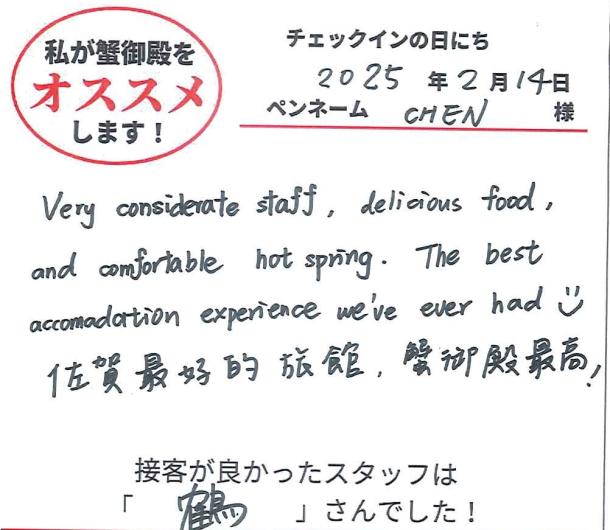 私が蟹御殿を
オススメ
します！
チェックインの日にち
2025 年 2 月 14日
ペンネーム CHEN 様
Very considerate staff, delicious food,
and comfortable hot spring. The best
accomadation experience we've ever had
佐賀最好的旅館，蟹御殿最高！
接客が良かったスタッフは
「 鶴 」さんでした！